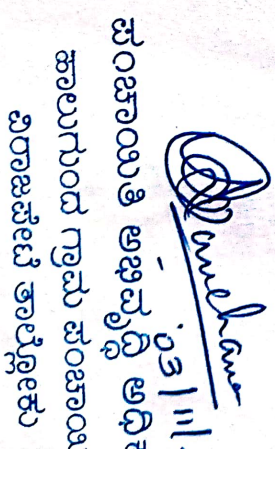 03/11/
ಪಂಚಾಯಿತಿ ಅಭಿವೃದ್ಧಿ ಅಧಿ
ಹಾಲುಗುಂದ ಗ್ರಾಮ ಪಂಚಾಯ
ವಿರಾಜಪೇಟೆ ತಾಲ್ಲೋಕು